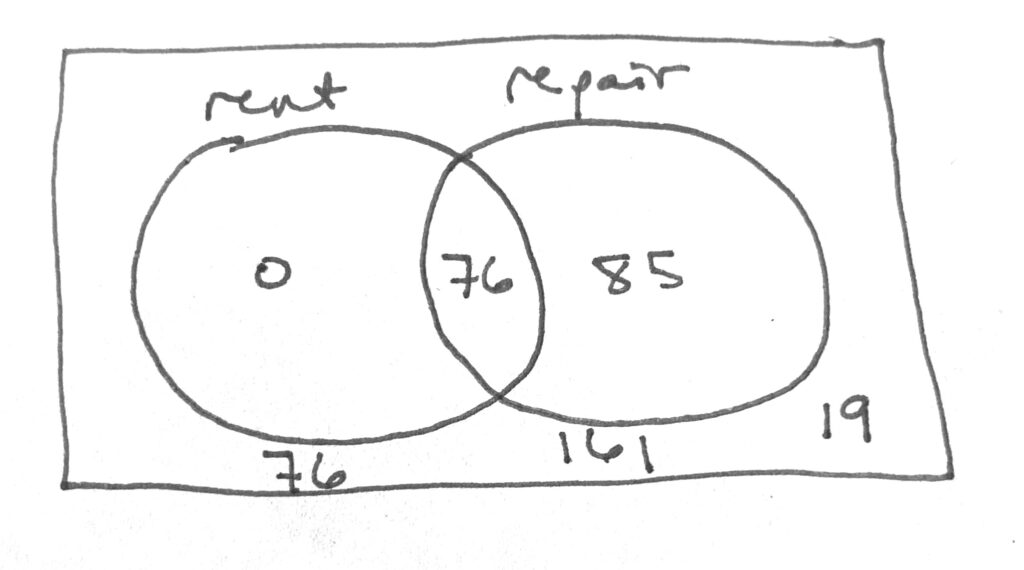 rent repair
0 76 85
19
76 161